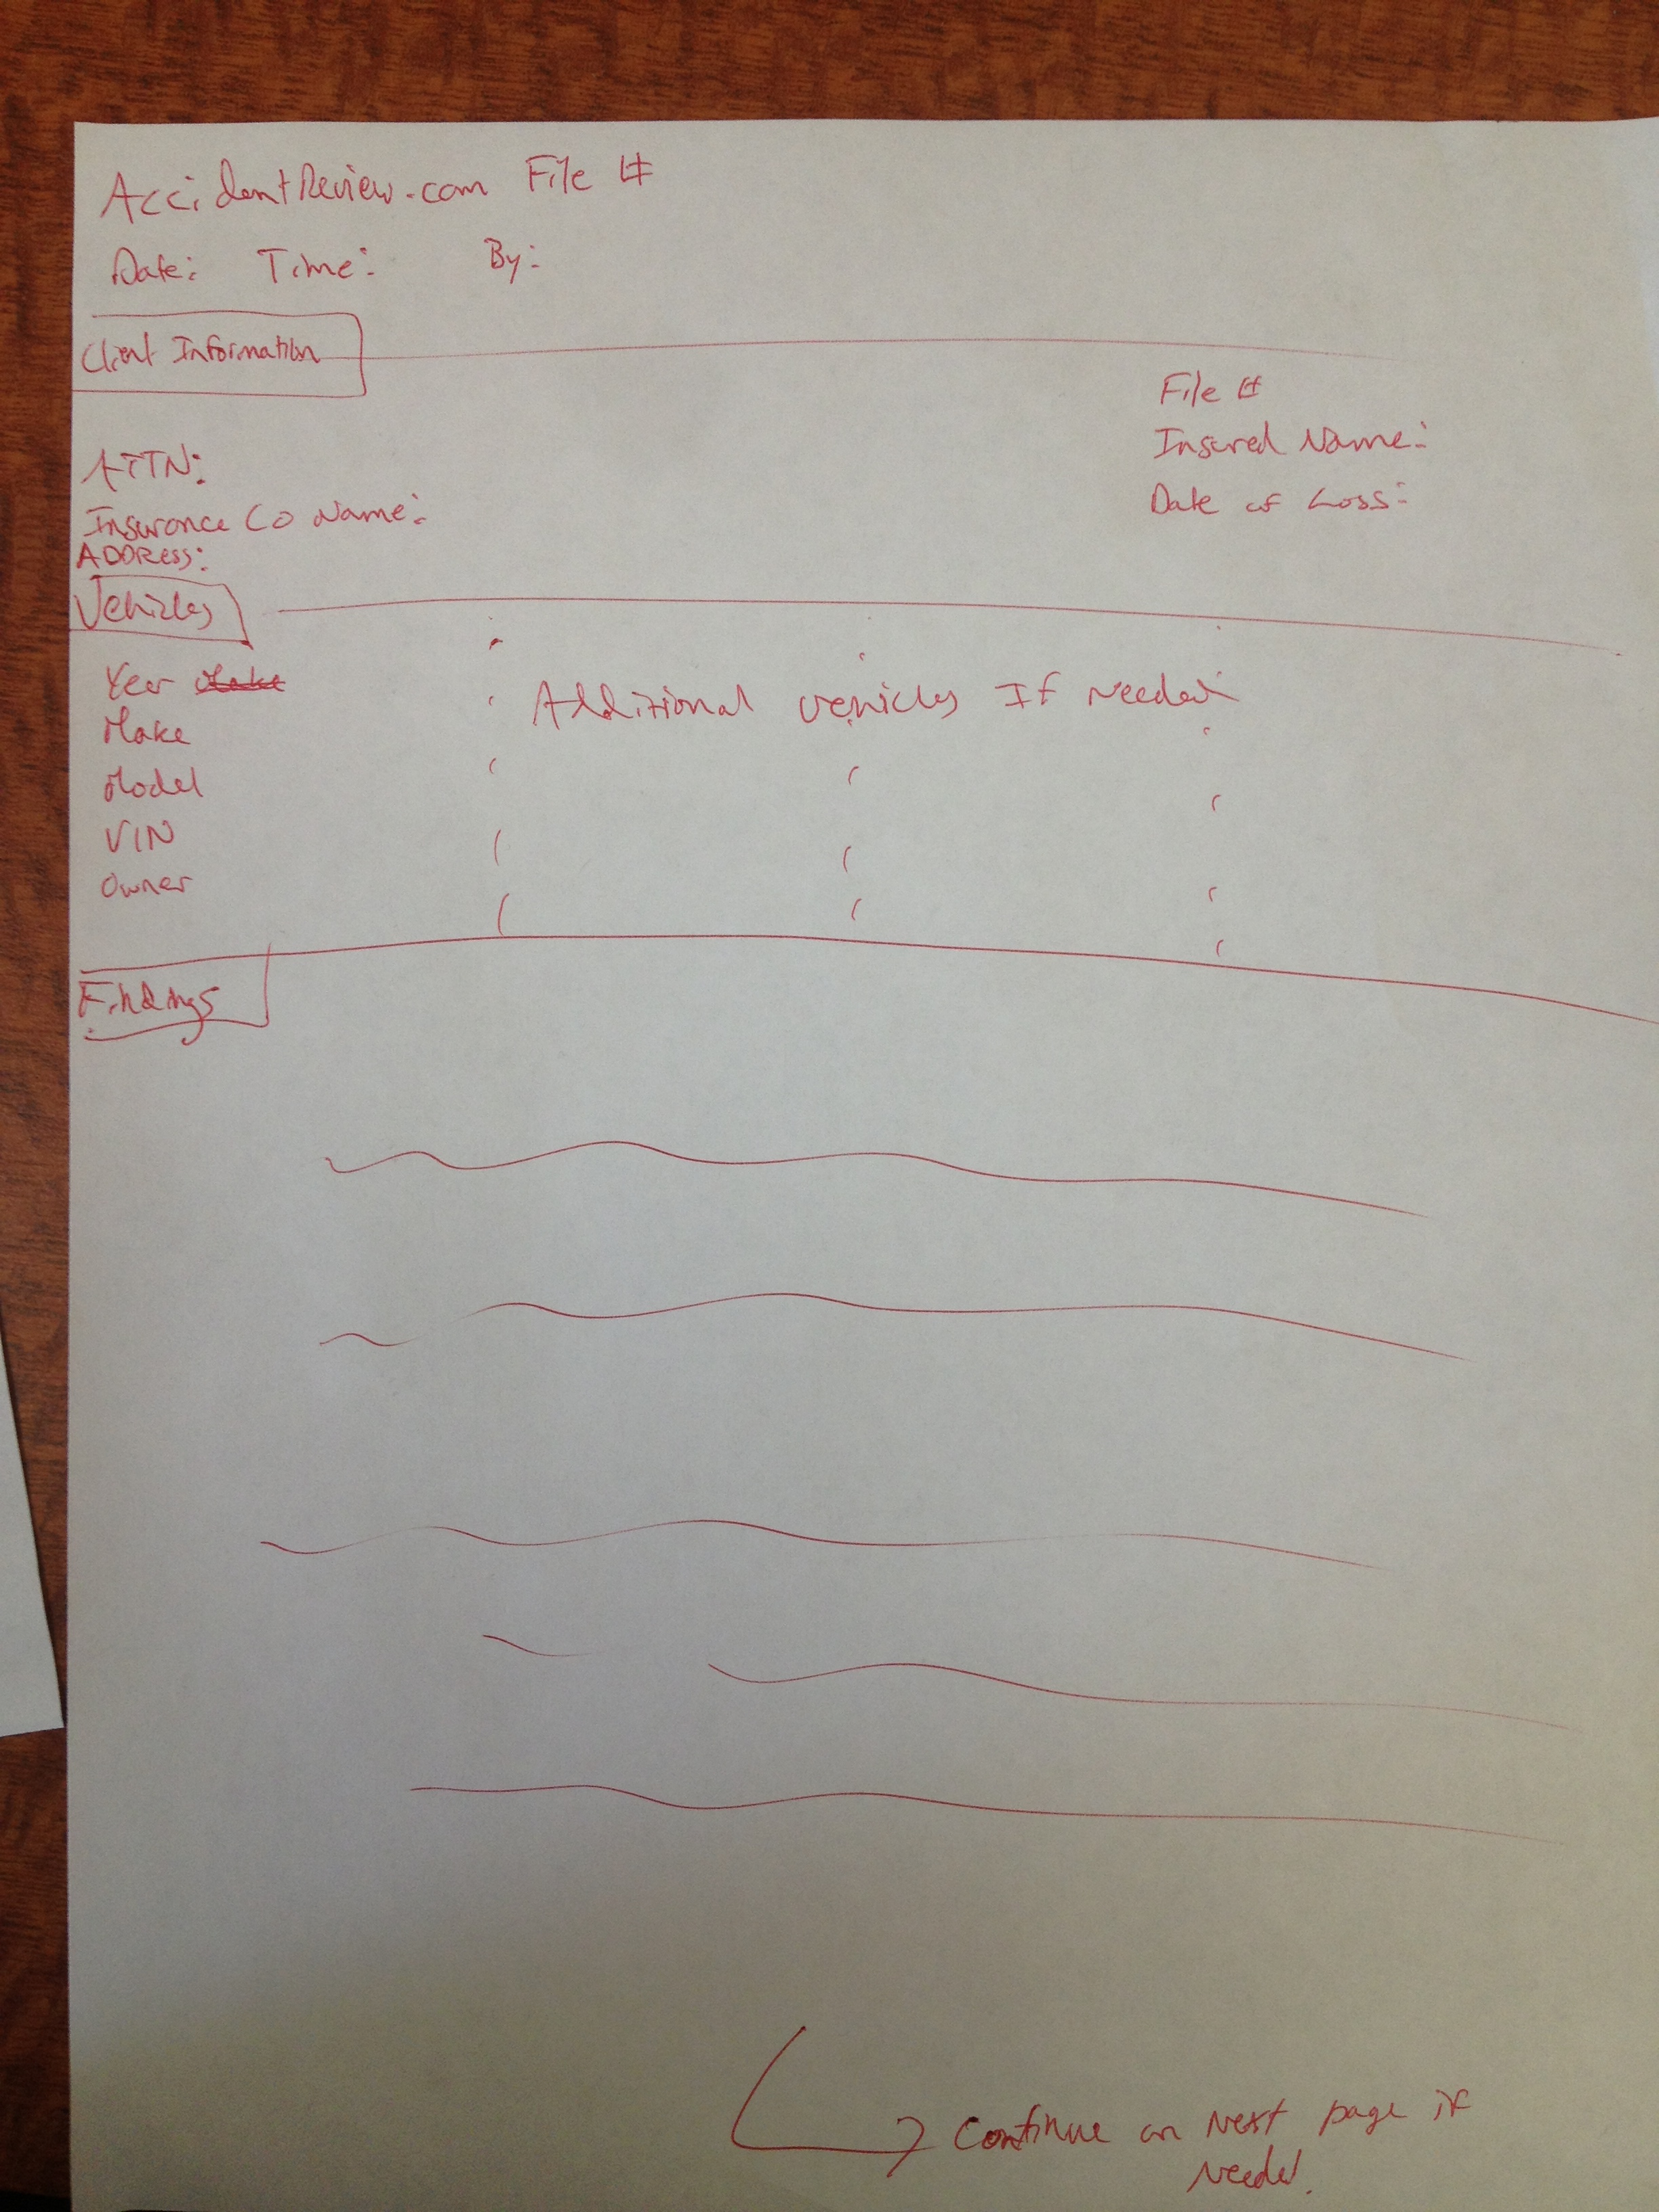 AccidentReview.com File #
Date: Time: By:
Client Information
File #
Insured Name:
Date of Loss:
ATTN:
Insurance Co Name:
ADDRESS:
Vehicles
Year Make
Additional vehicles If Needed
Make
Model
VIN
Owner
Findings
Continue on Next page if
Needed.